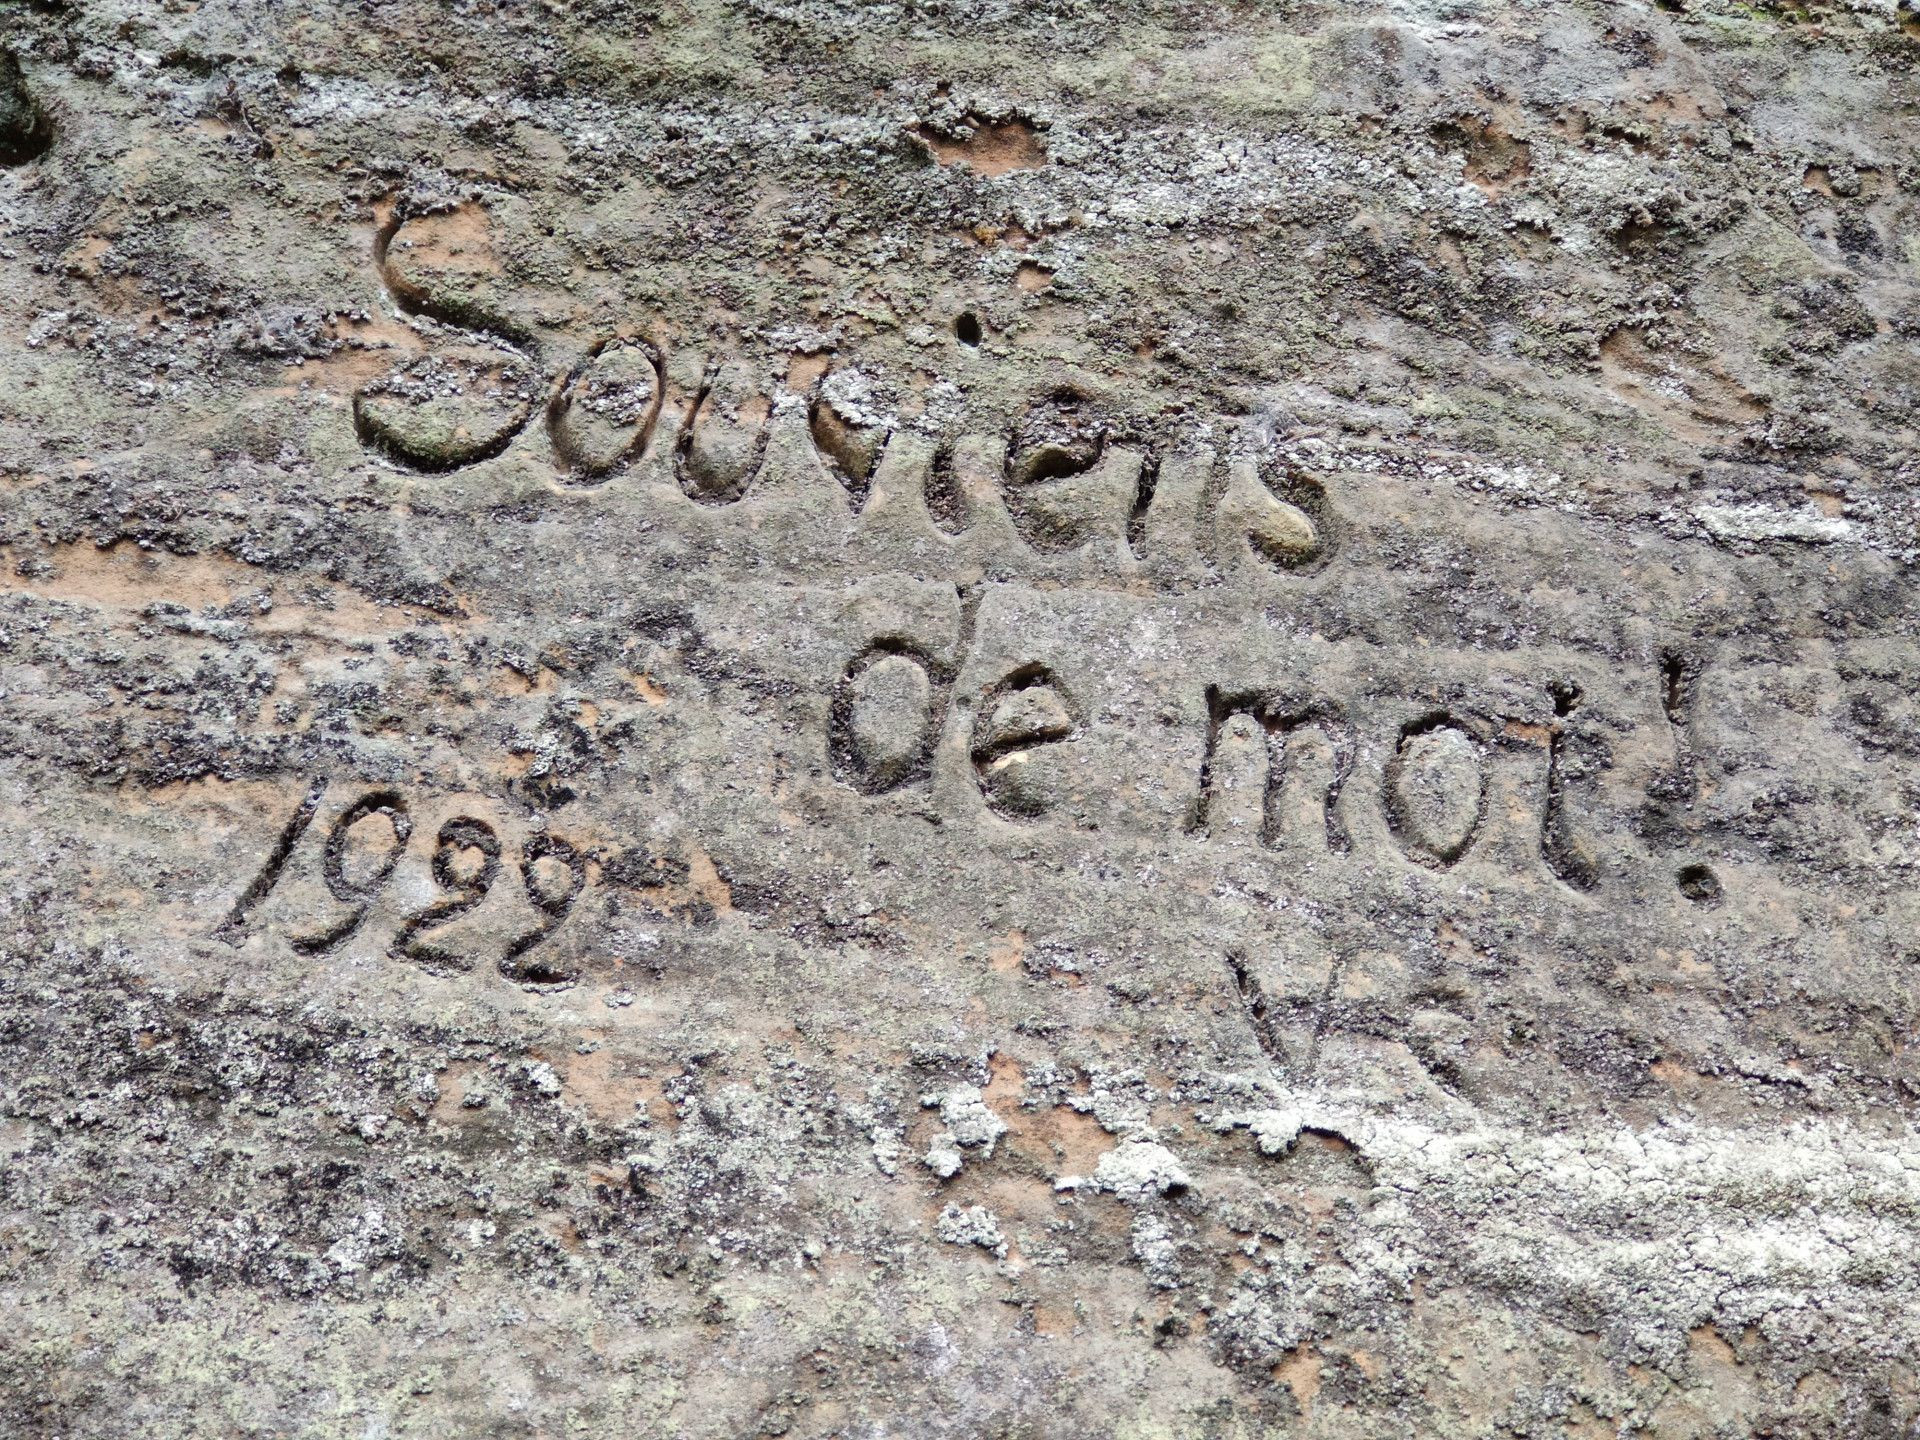 Souviens
de moi!
1922